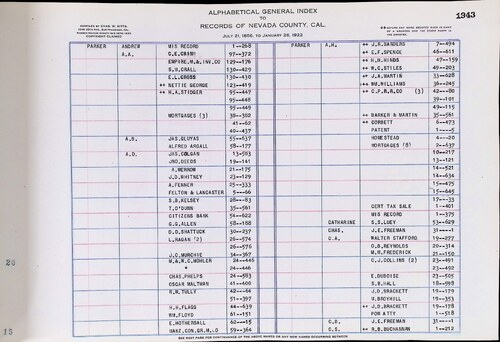 ALPHABETICAL GENERAL INDEX
TO
RECORDS OF NEVADA COUNTY, CAL.
JULY 21, 1856, TO JANUARY 28, 1922
1943
PARKER ANDREW MIS RECORD 1--268 PARKER A.H. ++ J.R.SANDERS 7--494
A.A. C.E.GRANT 97--372 ++ E.F.SPENCE 46--611
EMPIRE,M.& INV.CO 129--176 ++ H.H.HINDS 47--159
S.H.CRALL 130--429 ++ W.C.STILES 49--203
E.L.CROSS 130--430 ++ J.A.MARTIN 33--628
++ NETTIE GEORGE 123--419 ++ WM.WILLIAMS 36--245
++ H.A.STIDGER 95--447 ++ C.P.R.R.CO (3) 42--80
95--448 39--101
95--449 49--115
MORTGAGES (3) 38--382 ++ BARKER & MARTIN 35--561
41--62 ++ CORBETT 6--473
40--437 PATENT 1---5
A.B. JAS.GLUYAS 55--637 HOMESTEAD 4--20
ALFRED ARGALL 58--177 MORTGAGES (8) 2--637
A.D. JAS.COLGAN 13-583 10--217
JNO.DEEDS 19--141 13--121
A.MERROW 21--175 14--521
J.D.WHITNEY 23--129 14--634
A.FENNER 25--333 15--475
FELTON & LANCASTER 5---66 15--645
S.B.KELSEY 28--83 17---33
T.O'DUNN 35--581 CERT TAX SALE 1--401
CITIZENS BANK 54--622 MIS RECORD 1--375
G.G.ALLEN 58--188 CATHARINE S.S.LUEY 53--629
O.O.SHATTUCK 30--237 CHAS. J.E.FREEMAN 31---1
L.RAGAN (2) 26--574 C.A. WALTER STAFFORD 19--277
26--576 O.B.REYNOLDS 20--314
J.C.MURCHIE 34--367 M.M.FREDERICK 21--150
M.& W.C.MOHLER 24--446 C.J.COLLINS (2) 23--491
" 24--446 23--492
CHAS.PHELPS 24--583 E.DUBOISE 23--505
OSCAR MALTMAN 41--600 S.B.HALL 18--598
R.M.TULLY 42---64 J.D.BRACKETT 19--179
51--397 W.BROYHILL 19--353
H.H.FLAGG 44--639 J.D.BRACKETT 19--178
WM.FLOYD 61--151 POW ATTY 1--518
E.HOTHERSALL 62--15 C.E. J.E.FREEMAN 31---1
59--366 C.S. ++ R.B.BUCHANNAN 1--212
SEE NEXT PAGE FOR CONTINUANCE OF THE ABOVE NAMES OR ANY NEW NAMES OCCURRING BETWEEN
20
15